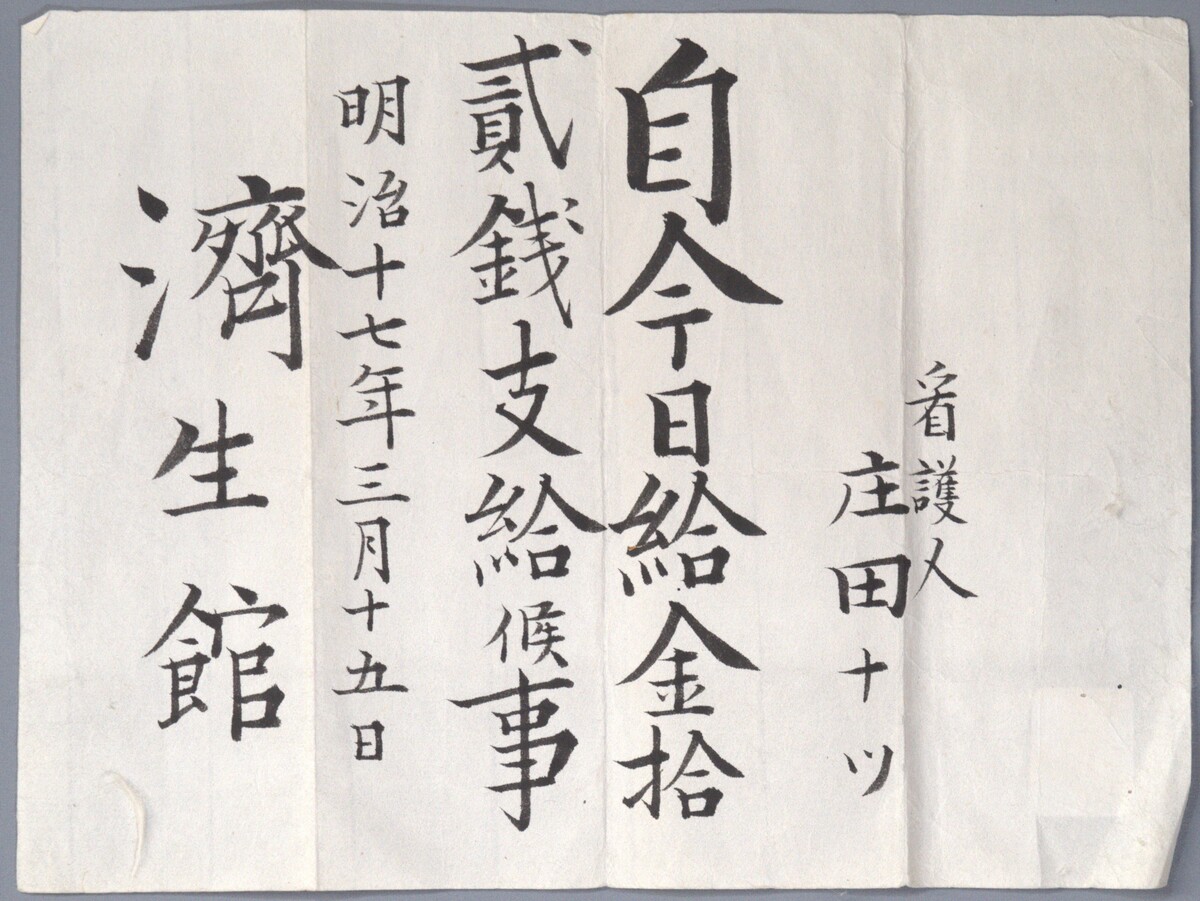 看護人
庄田十ツ
自今日給金拾
貳銭支給候事
明治十七年三月十五日
濟生館